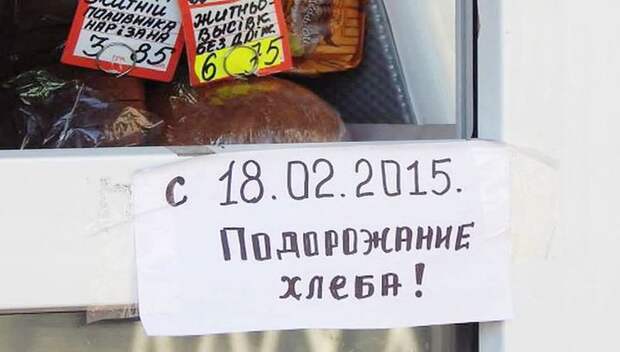 ЖИТНІЙ
ПОЛОВИНКА
НАРІЗАНА
3 85
ЖИТНЬО-
ВИСІВК.
БЕЗ ДРІЖ.
6 75
С 18.02.2015.
ПОДОРОЖАНИЕ
ХЛЕБА!